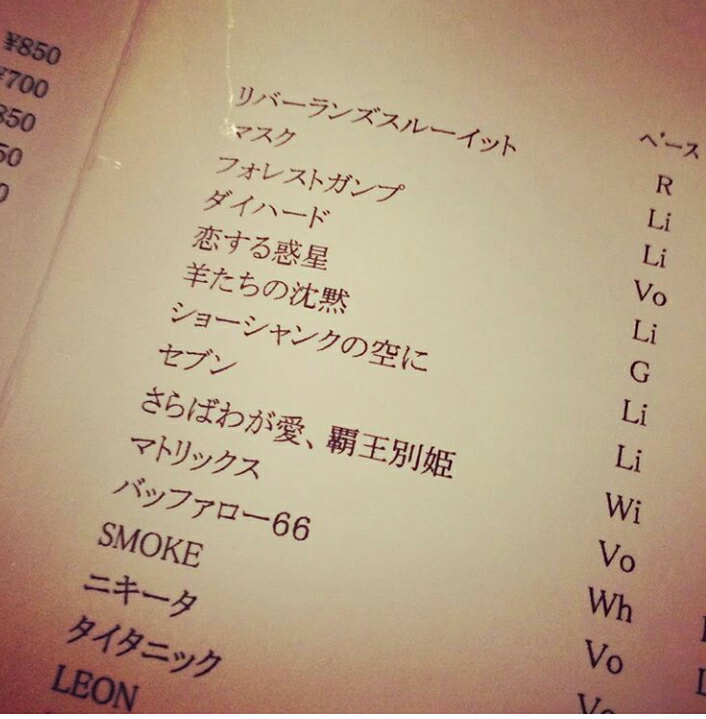 ¥850
¥700
850
50
0
リバーランズスルーイット
マスク
フォレストガンプ
ダイハード
恋する惑星
羊たちの沈黙
ショーシャンクの空に
セブン
さらばわが愛、覇王別姫
マトリックス
バッファロー66
SMOKE
ニキータ
タイタニック
LEON
ベース
R
Li
Li
Vo
Li
G
Li
Li
Wi
Vo
Wh
Vo
Vo